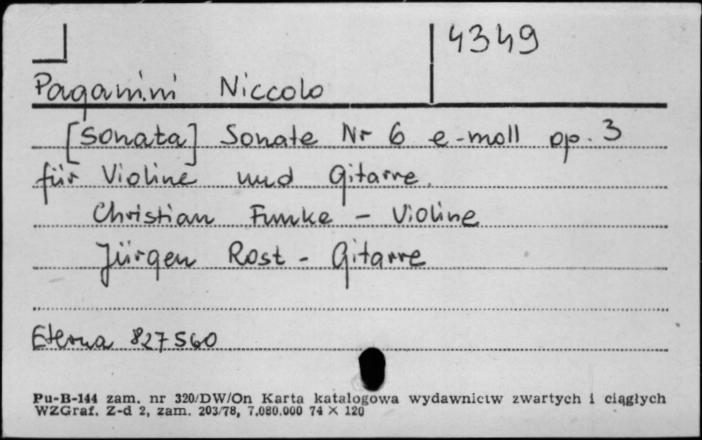 4349
Paganini Niccolo
[Sonata] Sonate Nr 6 e-moll op. 3
für Violine und Gitarre.
Christian Funke - Violine
Jürgen Rost - Gitarre
Eterna 827560
Pu-B-144 zam. nr 320/DW/On Karta katalogowa wydawnictw zwartych i ciągłych
WZGraf. Z-d 2, zam. 203/78, 7.080.000 74 × 120